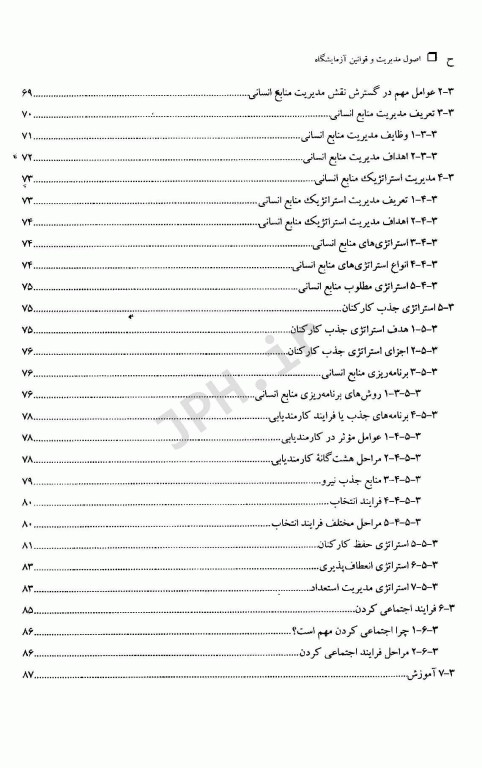 ح ❐ اصول مدیریت و قوانین آزمایشگاه
۲-۳ عوامل مهم در گسترش نقش مدیریت منابع انسانی ۶۹
۳-۳ تعریف مدیریت منابع انسانی ۷۰
۱-۳-۳ وظایف مدیریت منابع انسانی ۷۱
۲-۳-۳ اهداف مدیریت منابع انسانی ۷۲
۴-۳ مدیریت استراتژیک منابع انسانی ۷۳
۱-۴-۳ تعریف مدیریت استراتژیک منابع انسانی ۷۳
۲-۴-۳ اهداف مدیریت استراتژیک منابع انسانی ۷۴
۳-۴-۳ استراتژی‌های منابع انسانی ۷۴
۴-۴-۳ انواع استراتژی‌های منابع انسانی ۷۴
۵-۴-۳ استراتژی مطلوب منابع انسانی ۷۵
۵-۳ استراتژی جذب کارکنان ۷۵
۱-۵-۳ هدف استراتژی جذب کارکنان ۷۵
۲-۵-۳ اجزای استراتژی جذب کارکنان ۷۶
۳-۵-۳ برنامه‌ریزی منابع انسانی ۷۶
۱-۳-۵-۳ روش‌های برنامه‌ریزی منابع انسانی ۷۶
۴-۵-۳ برنامه‌های جذب یا فرایند کارمندیابی ۷۸
۱-۴-۵-۳ عوامل مؤثر در کارمندیابی ۷۸
۲-۴-۵-۳ مراحل هشت‌گانۀ کارمندیابی ۷۸
۳-۴-۵-۳ منابع جذب نیرو ۷۹
۴-۴-۵-۳ فرایند انتخاب ۸۰
۵-۴-۵-۳ مراحل مختلف فرایند انتخاب ۸۰
۵-۵-۳ استراتژی حفظ کارکنان ۸۱
۶-۵-۳ استراتژی انعطاف‌پذیری ۸۳
۷-۵-۳ استراتژی مدیریت استعداد ۸۳
۶-۳ فرایند اجتماعی کردن ۸۵
۱-۶-۳ چرا اجتماعی کردن مهم است؟ ۸۶
۲-۶-۳ مراحل فرایند اجتماعی کردن ۸۶
۷-۳ آموزش ۸۷
JPH.ir